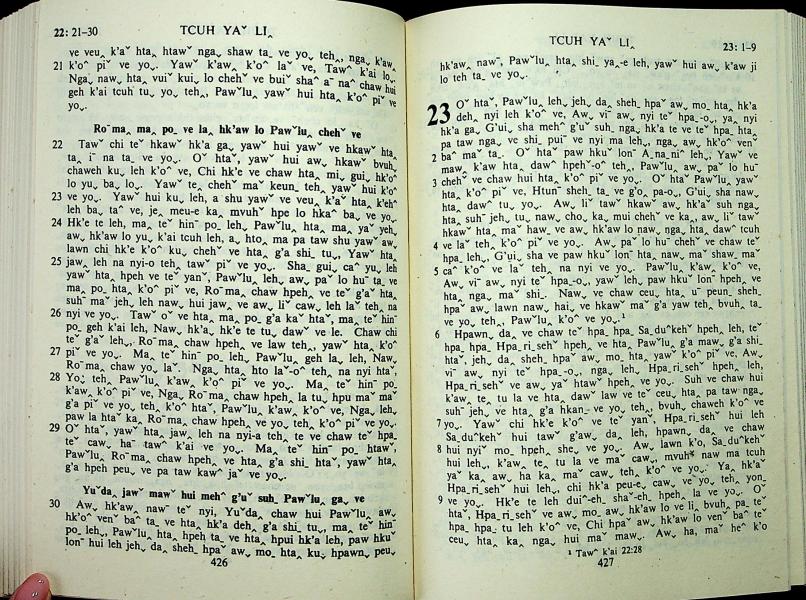 22: 21–30 TCUH YAˇ LI‸
ve veu‸ k'aˇ hta‸ htawˇ nga˯ shaw ta˯ ve yo˯ teh‸, nga˯ k'aw‸
21 k'o^ piˇ ve yo˯. Yawˇ k'aw‸ k'o^ laˇ ve, Taw^ k'ai lo˯.
Nga˯ naw˯ hta‸ vuiˇ kui˯ lo chehˇ ve buiˇ sha^ aˉ na^ chaw hui
geh k'ai tcuhˇ tu˯ yo˯ teh‸, Pawˇlu‸ yawˇ hui hta‸ k'o^ piˇ ve
yo˯.
Roˇma‸ ma‸ po˯ ve la‸ hk'aw lo Pawˇlu‸ chehˇ ve
22 Tawˇ chi teˇ hkawˇ hk'a ga‸ yawˇ hui yawˇ ve hkawˇ hta‸
ta‸ iˉ na ta˯ ve yo˯. Oˇ htaˇ, yawˇ hui aw˯ hkawˇ bvuh‸
chaweh ku˯ leh k'o^ ve, Chi hk'e ve chaw hta‸ mi˯ gui‸ hk'oˇ
lo yu˯ ba˯ lo˯. Yawˇ te‸ chehˇ maˇ keun˯ teh‸ yawˇ hui k'oˇ
23 ve yo˯. Yawˇ hui ku˯ leh, a shu yawˇ ve veu‸ k'aˇ hta‸ k'eh^
leh ba˯ ta^ ve, je‸ meu-e ka‸ mvuhˇ hpe lo hka^ ba˯ ve yo˯.
24 Hk'e te leh, ma‸ teˇ hinˉ po˯ leh‸ Pawˇlu‸ hta‸ ma‸ yaˇ yeh‸
aw˯ hk'aw lo yu˯ k'ai tcuh leh, a˯ hto‸ ma pa taw shu yawˇ aw˯
lawn chi hk'e k'o^ ku‸ chehˇ ve hta‸ g'a shi˯ tu˯, Yawˇ hta‸
25 jaw‸ leh na nyi-o teh‸ tawˇ piˇ ve yo˯. Sha˯ gui‸ ca^ yu˯ leh
yawˇ hta‸ hpeh ve teˇ yanˇ, Pawˇlu‸ leh‸ aw˯ paˇ lo huˉ ta˯ ve
ma‸ po˯ hta‸ k'o^ piˇ ve, Roˇma‸ chaw hpeh‸ ve teˇ g'aˇ hta‸
suhˉ maˇ jeh‸ leh naw˯ hui jaw˯ ve aw˯ liˇ caw˯ leh laˇ teh‸ na
26 nyi ve yo˯. Tawˇ oˇ ve hta‸ ma‸ po˯ g'a ka^ htaˇ, ma‸ teˇ hinˉ
po˯ geh k'ai leh, Naw˯ hk'a‸ hk'e te tu˯ dawˇ ve le. Chaw chi
teˇ g'aˇ leh‸, Roˇma‸ chaw hpeh‸ ve law teh‸, yawˇ hta‸ k'oˇ
27 piˇ ve yo˯. Ma‸ teˇ hinˉ po˯ leh‸, Pawˇlu‸ geh la˯ leh, Naw˯
Roˇma‸ chaw yo˯ laˇ. Nga˯ hta‸ hto laˇ-oˇ teh‸ na nyi htaˇ,
28 Yo˯ teh‸ Pawˇlu‸ k'aw‸ k'o^ piˇ ve yo˯. Ma‸ teˇ hinˉ po˯
k'aw‸ k'o^ piˇ ve, Nga˯ Roˇma‸ chaw hpeh‸ la tu˯, hpu maˇ maˇ
g'a piˇ ve yo˯ teh‸ k'o^ htaˇ, Pawˇlu‸ k'aw‸ k'o^ ve, Nga˯ leh‸
paw la htaˇ ka‸ Roˇma‸ chaw hpeh‸ ve yo˯ teh‸ k'o^ piˇ ve yo˯.
29 Oˇ htaˇ, yawˇ hta‸ jaw‸ leh na nyi-a teh‸ te ve chaw teˇ hpa‸
teˇ caw˯ ha^ tawˇ k'ai ve yo˯. Ma‸ teˇ hinˉ po˯ htawˇ,
Pawˇlu‸ Roˇma‸ chaw hpeh‸ ve hta‸ g'a shi˯ htaˇ, yawˇ hta‸
g'a hpeh peu˯ ve pa taw kaw^ jaˇ ve yo˯.
Yuˇda‸ jawˇ mawˇ hui meh^ g'uˇ suh˯ Pawˇlu‸ ga˯ ve
30 Aw˯ hk'aw‸ nawˇ teˇ nyi, Yuˇda‸ chaw hui Pawˇlu‸ aw˯
hk'oˇ venˇ ba^ ta˯ ve hta‸ hk'a deh‸ g'a shi tu˯, ma‸ teˇ hinˉ
po˯ leh‸, Pawˇlu‸ hta‸ hpeh ta˯ ve hta‸ hpui hk'a leh, paw hkuˇ
lonˉ hui leh jeh‸ da‸ sheh‸ hpaˇ aw˯ mo˯ hta‸ ku‸ hpawn‸ peu˯
426
TCUH YAˇ LI‸ 23: 1–9
hk'aw‸ nawˉ, Pawˇlu‸ hta‸ shi˯ ya‸-e leh, yawˇ hui aw˯ k'aw ji
lo teh ta˯ ve yo˯.
23 Oˇ htaˇ, Pawˇlu‸ leh‸ jeh‸ da‸ sheh‸ hpaˇ aw˯ mo˯ hta‸ hk'a
deh‸ nyi leh k'o^ ve, Aw˯ viˉ aw˯ nyiˉ teˇ hpa˯-o˯, ya‸ nyi
hk'a ga‸ G'ui‸ sha mehˇ g'uˇ suh˯ nga˯ hk'a te ve teˇ hpa‸ hta‸
pa taw nga˯ ve shi˯ puiˉ ve nyi ma leh‸, nga˯ aw˯ hk'o^ venˇ
2 ba^ maˇ ta˯. Oˇ htaˇ paw hkuˇ lonˉ A‸na˯niˇ leh‸, Yawˇ ve
maw‸ k'aw hta‸ dawˇ hpehˇ-oˇ teh‸, Pawˇlu‸ aw˯ paˇ lo huˉ
3 chehˇ ve chaw hui hta‸ k'o^ piˇ ve yo˯. Oˇ htaˇ Pawˇlu‸ yawˇ
hta‸ k'o^ piˇ ve, Htunˇ sheh‸ ta˯ ve g'o‸ pa-o˯, G'ui‸ sha naw˯
hta‸ dawˇ tu˯ yo˯. Aw˯ liˇ tawˇ hkaw aw˯ hk'aˇ suh nga˯
hta‸ suhˉ jeh‸ tu˯ naw˯ cho ka‸ mui chehˇ ve ka‸, aw˯ liˇ tawˇ
hkawˇ hta‸ maˇ haw˯ ve aw˯ hk'aw lo naw˯ nga˯ hta‸ dawˇ tcuh
4 ve laˇ teh‸ k'o^ piˇ ve yo˯. Aw˯ pa˯ lo huˉ chehˇ ve chaw teˇ
hpa˯ leh‸, G'ui‸ sha ve paw hkuˇ lonˉ hta‸ naw˯ maˇ shaw˯ maˇ
5 ca^ k'o^ ve laˇ teh‸ na nyi ve yo˯. Pawˇlu‸ k'aw‸ k'o^ ve,
Aw˯ viˉ aw˯ nyi teˇ hpa˯-o˯, yawˇ leh‸ paw hkuˇ lonˉ hpeh‸ ve
hta‸ nga˯ maˇ shi˯. Naw˯ ve chaw ceu‸ hta‸ uˉ peun‸ sheh‸
hpaˇ aw˯ lawn naw˯ hai‸ ve hkawˇ maˇ g'a yaw teh‸ bvuh‸ ta˯
ve yo˯ teh‸, Pawˇlu‸ k'o^ ve yo˯.¹
6 Hpawn‸ da‸ ve chaw teˇ hpa‸ hpa‸ Sa˯du^kehˇ hpeh‸ leh, teˇ
hpa‸ hpa‸ Hpa˯ri˯sehˇ hpeh‸ ve hta‸ Pawˇlu‸ g'a maw˯ g'a shi
htaˇ, jeh‸ da‸ sheh‸ hpaˇ aw˯ mo˯ hta‸ yawˇ k'o^ piˇ ve, Aw˯
viˉ aw˯ nyi teˇ hpa˯-o˯, nga˯ leh Hpa˯ri˯sehˇ hpeh‸ leh,
Hpa˯ri˯sehˇ ve aw˯ yaˇ htawˇ hpeh‸ ve yo˯. Suh ve chaw hui
k'aw‸ te‸ tu la ve hta‸ dawˇ law ve teˇ ceu‸ hta‸ pa taw nga˯
suhˉ jehˇ ve hta‸ g'a hkan˯ ve yo˯ teh‸, bvuh‸ chaweh k'o^ ve
7 yo˯. Yawˇ chi hk'e k'o^ ve teˇ yanˇ, Hpa˯ri˯sehˇ hui leh
Sa˯du^kehˇ hui tawˇ g'aw˯ da‸ leh, hpawn‸ da‸ ve chaw
8 hui nyiˇ mo˯ hpeh‸ she˯ ve yo˯. Aw˯ lawn k'o‸ Sa˯du^kehˇ
hui leh‸, k'aw‸ te‸ tu la ve maˇ caw˯, mvuhˇ naw ma tcuh
yaˇ ka‸ aw˯ ha ka‸ maˇ caw˯ teh‸ k'o^ ve yo˯. Ya‸ hk'aˇ
Hpa˯ri˯sehˇ hui leh‸, chi hk'a peu-e˯ caw˯ ve yo˯ teh‸ yon˯
9 ve yo˯. Hk'e te leh duiˉ-eh˯ shaˇ-eh˯ hpeh‸ la ve yo˯. Oˇ
htaˇ, Hpa˯ri˯sehˇ ve aw˯ mo˯ aw˯ hk'aw lo ve li˯ bvuh˯ pa˯ teˇ
hpa‸ hpa˯ tu leh k'o^ ve, Chi hpaˇ aw˯ hk'aw lo venˇ ba^ teˇ
ceu‸ hta‸ ka‸ nga˯ hui maˇ maw˯. Aw˯ ha‸ maˇ heˇ k'o
¹ Tawˇ k'ai 22:28
427